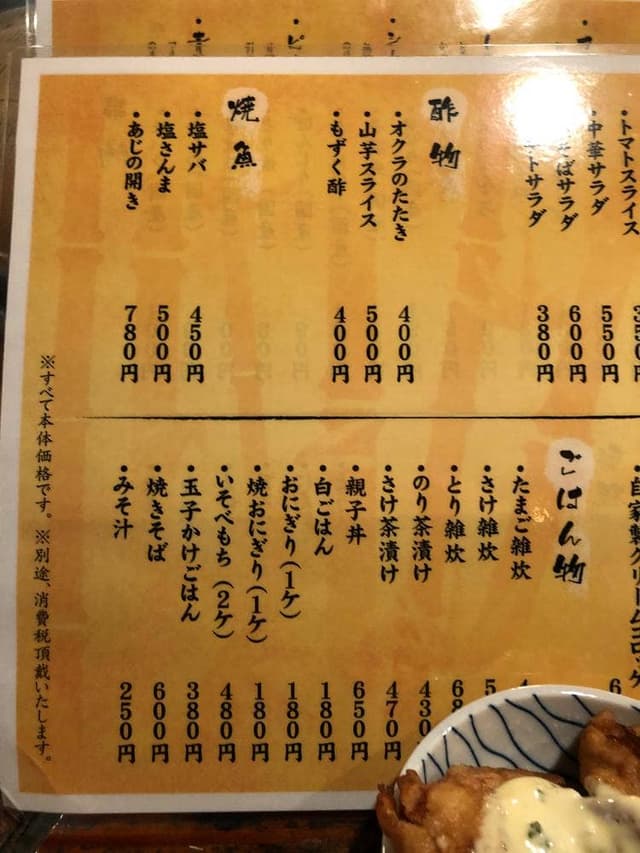 トマトスライス
中華サラダ 550円
サラダ 600円
トサラダ 380円
酢物
オクラのたたき 400円
山芋スライス 500円
もずく酢 400円
焼魚
塩サバ 450円
塩さんま 500円
あじの開き 780円
ごはん物
たまご雑炊
さけ雑炊
とり雑炊
のり茶漬け
さけ茶漬け 470円
親子丼 650円
白ごはん 180円
おにぎり(1ケ) 180円
焼おにぎり(1ケ) 180円
いそべもち(2ケ) 480円
玉子かけごはん 380円
焼きそば 600円
みそ汁 250円
※すべて本体価格です。 ※別途、消費税頂戴いたします。